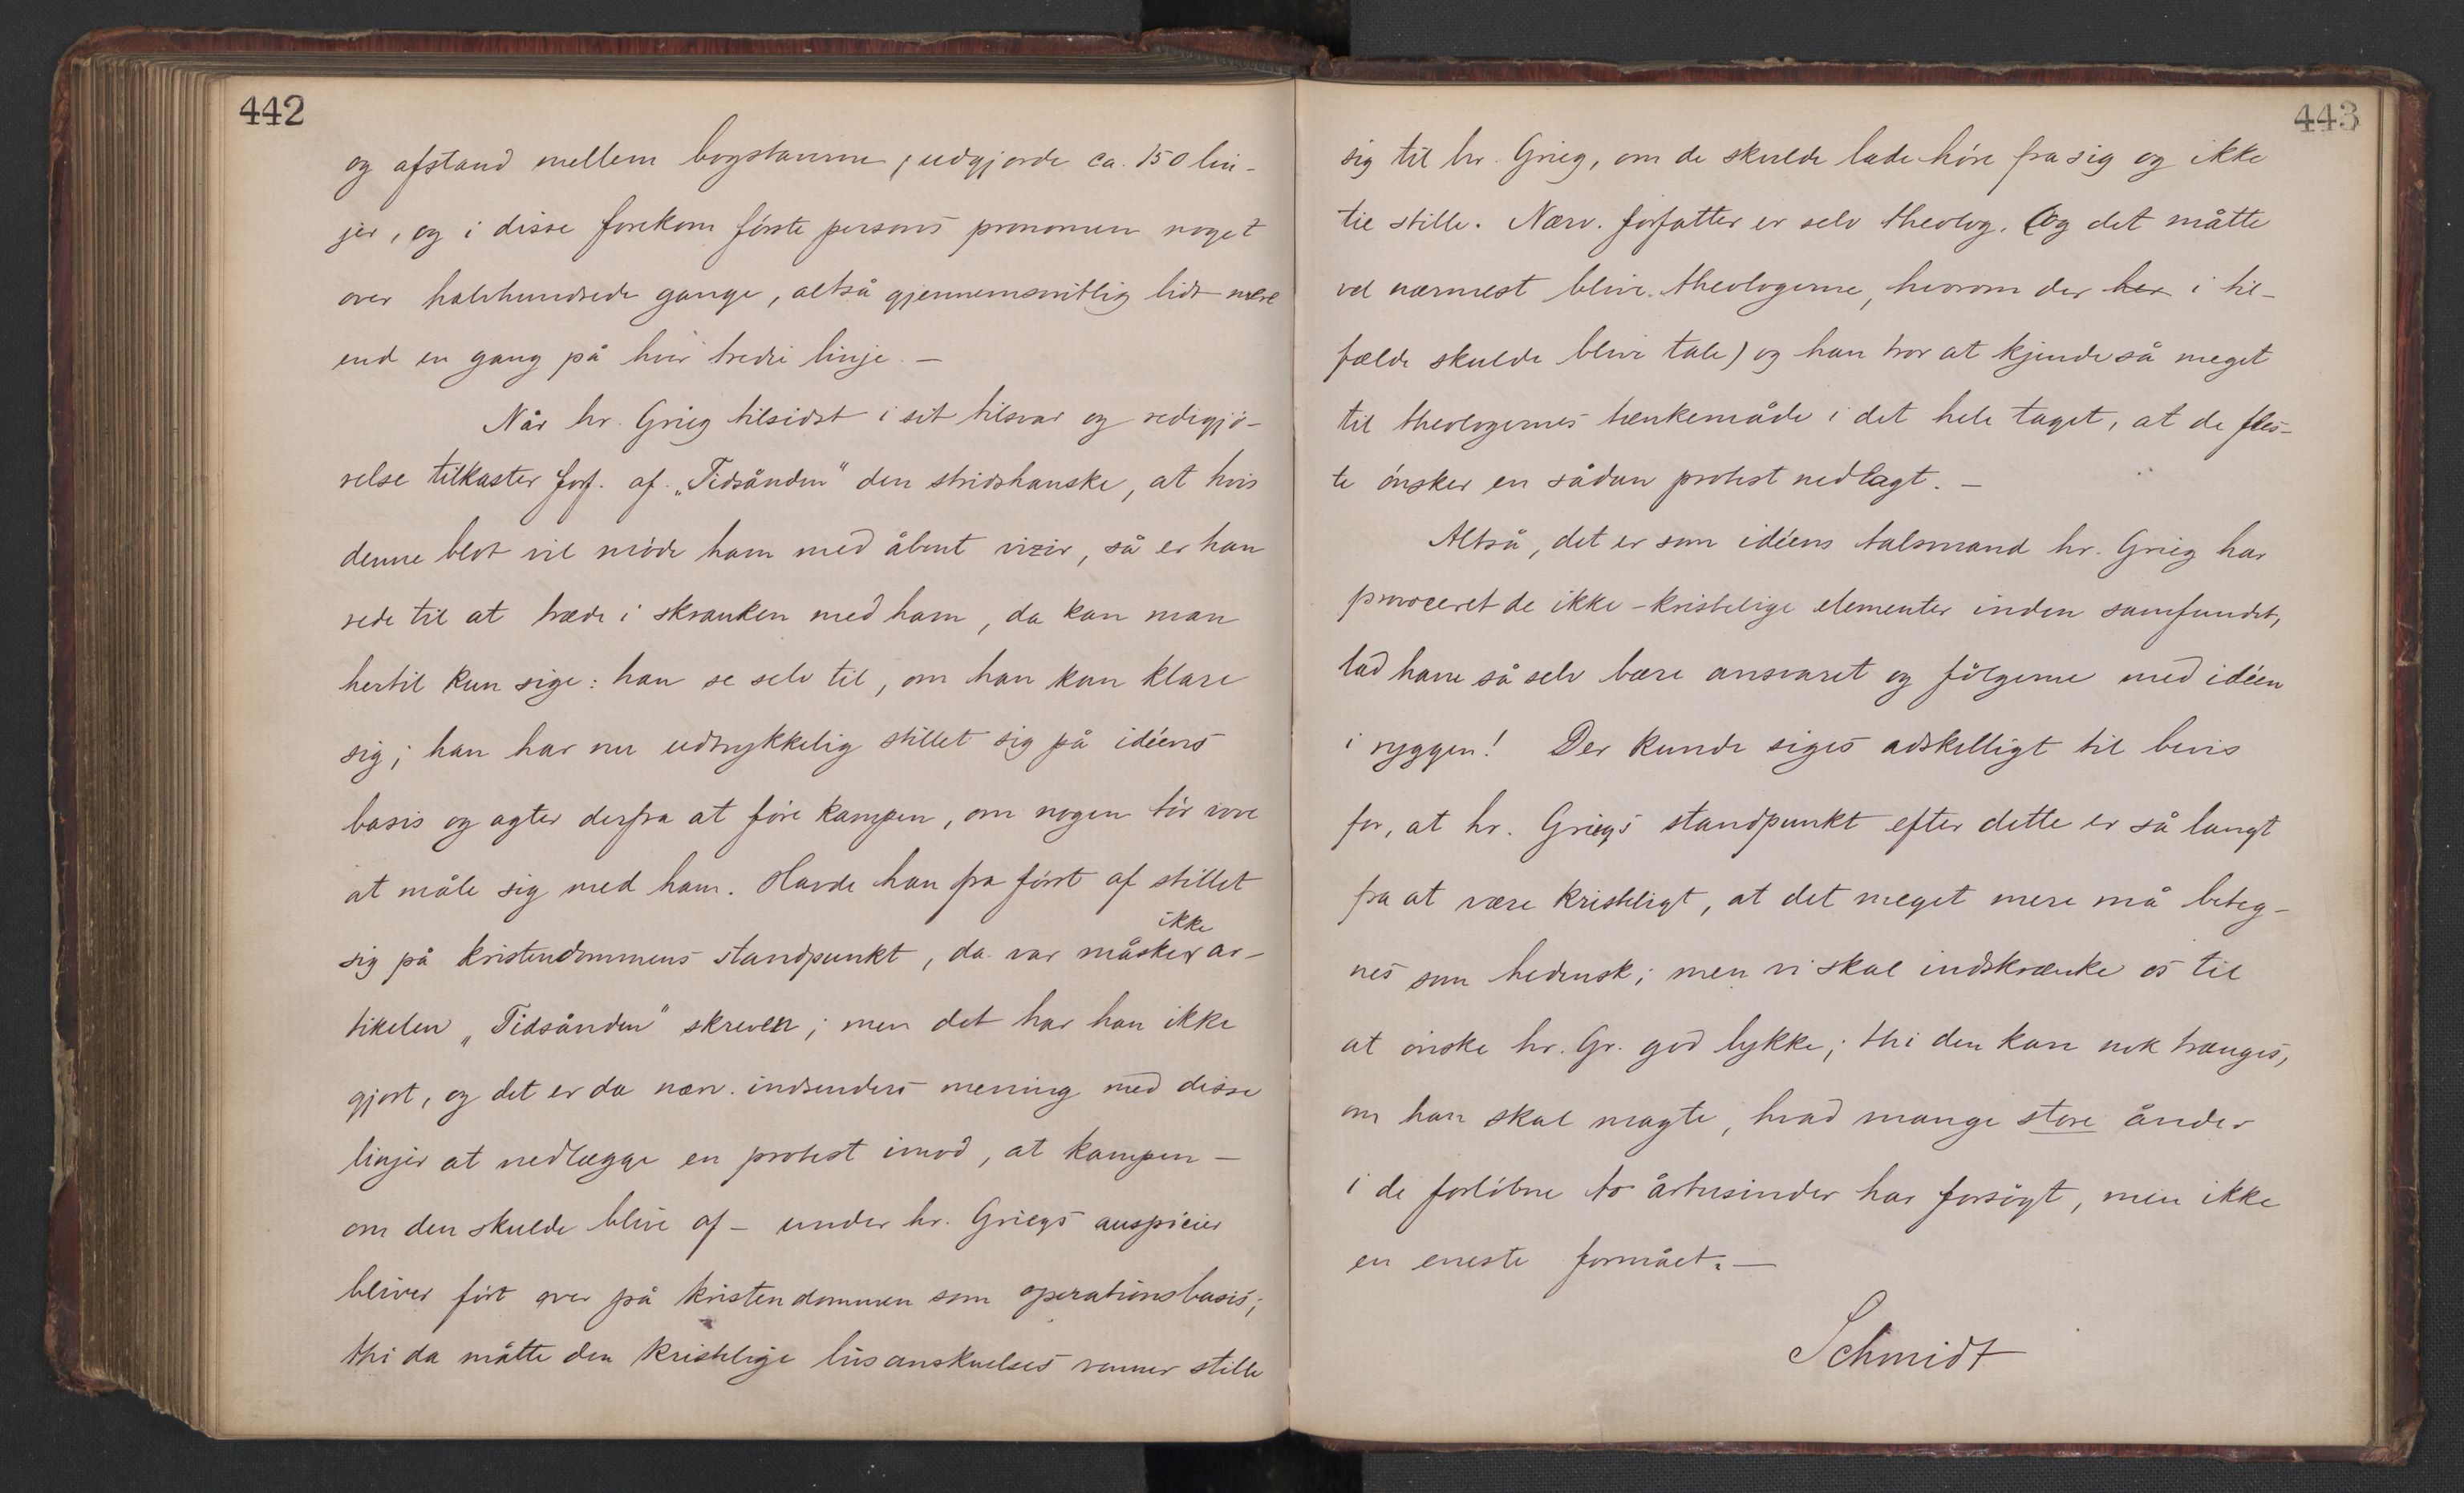 442
og afstand mellem bogstaverne, udgjorde ca. 150 lin-
jer, og i disse forekom förste persons pronomen noget
over halvhundrede gange, altså gjennemsnitlig lidt mere
end en gang på hver tredie linje. —
Når hr. Grieg tilsidst i sit tilsvar og redigjö-
relse tilkaster forf. af „Tidsånden" den stridshanske, at hvis
denne blot vil möde ham med åbent vizir, så er han
rede til at træde i skranken med ham, da kan man
hertil kun sige: han se selv til, om han kan klare
sig; han har nu udtrykkelig stillet sig på idéens
basis og agter derfra at före kampen, om nogen tör vove
at måle sig med ham. Havde han fra först af stillet
ikke
sig på kristendommens standpunkt, da var måske ar-
tikelen „Tidsånden" skreven; men det har han ikke
gjort, og det er da nærv. indsenders mening med disse
linjer at nedlægge en protest imod, at kampen —
om den skulde blive af — under hr. Griegs auspicier
bliver fört over på kristendommen som operationsbasis;
thi da måtte den kristelige livsanskuelses venner stille
443
sig til hr. Grieg, om de skulde lade höre fra sig og ikke
tie stille. Nærv. forfatter er selv theolog. (og det måtte
vel nærmest blive theologerne, hvorom der her i til-
fælde skulde blive tale) og han tror at kjende så meget
til theologernes tænkemåde i det hele taget, at de fles-
te önsker en sådan protest nedlagt. —
Altså, det er som idéens talsmand hr. Grieg har
provoceret de ikke-kristelige elementer inden samfundet,
lad ham så selv bære ansvaret og fölgerne med idéen
i ryggen! Der kunde siges adskelligt til bevis
for, at hr. Griegs standpunkt efter dette er så langt
fra at være kristeligt, at det meget mere må beteg-
nes som hedensk; men vi skal indskrænke os til
at önske hr. Gr. god lykke; thi den kan nok trænges,
om han skal magte, hvad mange store ånder
i de forlöbne to årtusinder har forsögt, men ikke
en eneste formået. —
Schmidt